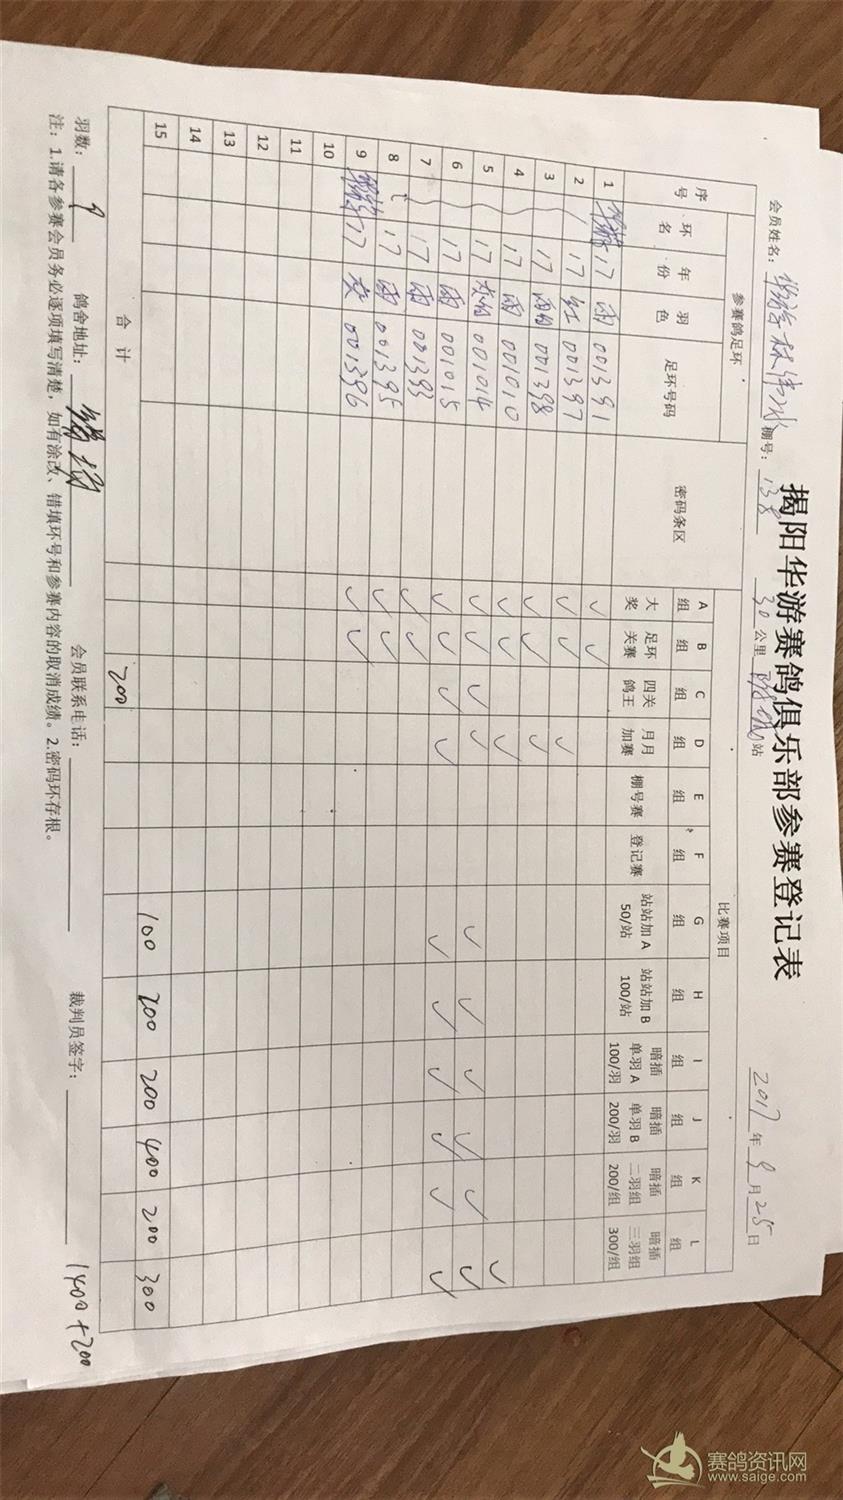 揭阳华游赛鸽俱乐部参赛登记表
会员姓名： 棚号： 138 30 公里 站 2017 年 9 月 25 日
序号 参赛鸽足环 密码条区 比赛项目
环名 年份 羽色 足环号码 A组 B组 C组 D组 E组 F组 G组 H组 I组 J组 K组 L组
大奖 足环关赛 四关鸽王 月月加赛 棚号赛 登记赛 站站加A 50/站 站站加B 100/站 暗插单羽A 100/羽 暗插单羽B 200/羽 暗插二羽组 200/组 暗插三羽组 300/组
1 华游 17 雨 001391 ✓ ✓
2 17 红 001397 ✓ ✓ ✓
3 17 雨白 001398 ✓ ✓ ✓
4 17 雨 001010 ✓ ✓ ✓
5 17 灰白 001014 ✓ ✓ ✓ ✓ ✓ ✓ ✓ ✓ ✓ ✓
6 17 雨 001015 ✓ ✓ ✓ ✓ ✓ ✓ ✓ ✓ ✓ ✓
7 17 雨 001393 ✓ ✓
8 17 雨 001395 ✓ ✓
9 华游 17 灰 001396 ✓ ✓
10
11
12
13
14
15
合计 200 100 200 200 400 200 300
羽数： 9 鸽舍地址： 会员联系电话： 裁判员签字： 1400+200
注：1.请各参赛会员务必逐项填写清楚，如有涂改、错填环号和参赛内容的取消成绩。2.密码环存根。
赛鸽资讯网
www.saige.com